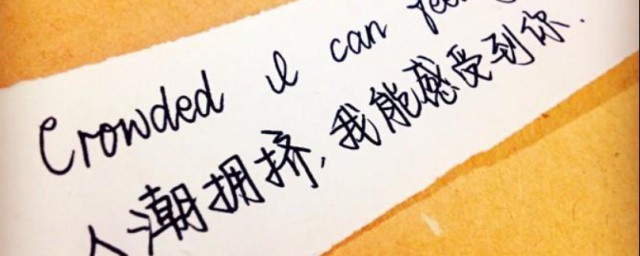 Crowded I can
人潮拥挤,我能感受到你.